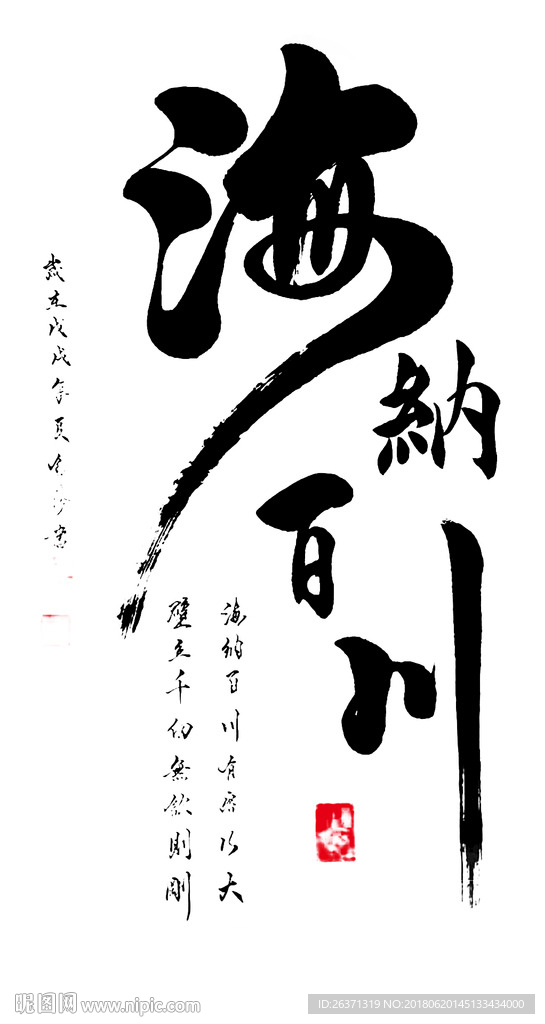 海納百川
海納百川有容乃大
壁立千仞無欲則剛
歲在戊戌年夏
昵图网 www.nipic.com
ID:26371319 NO:20180620145133434000